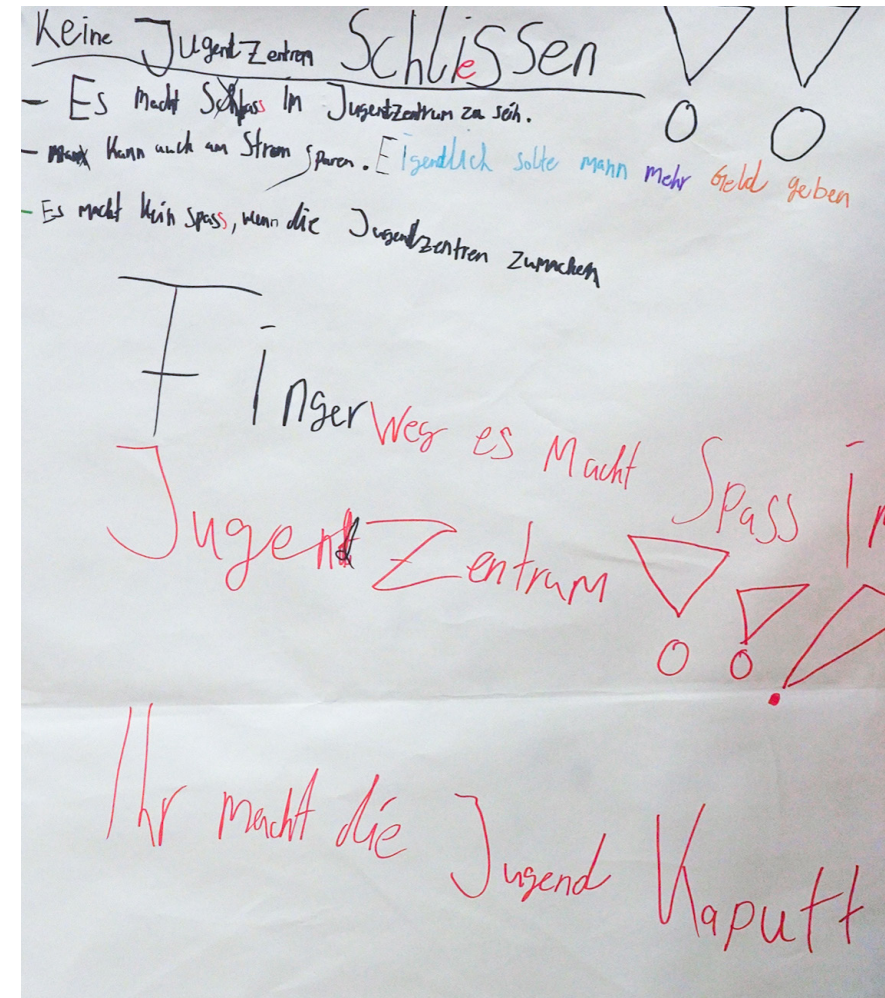 Keine Jugent Zentren Schliessen !!
- Es macht Spass Im Jugentzentrum zu sein.
- Kann auch am Strom sparen. Eigendlich solte mann mehr Geld geben
- Es macht kein spass, wenn die Jugendzentren zumachen
Finger Weg es Macht Spass In
Jugend Zentrum !!!
Ihr macht die Jugend Kaputt